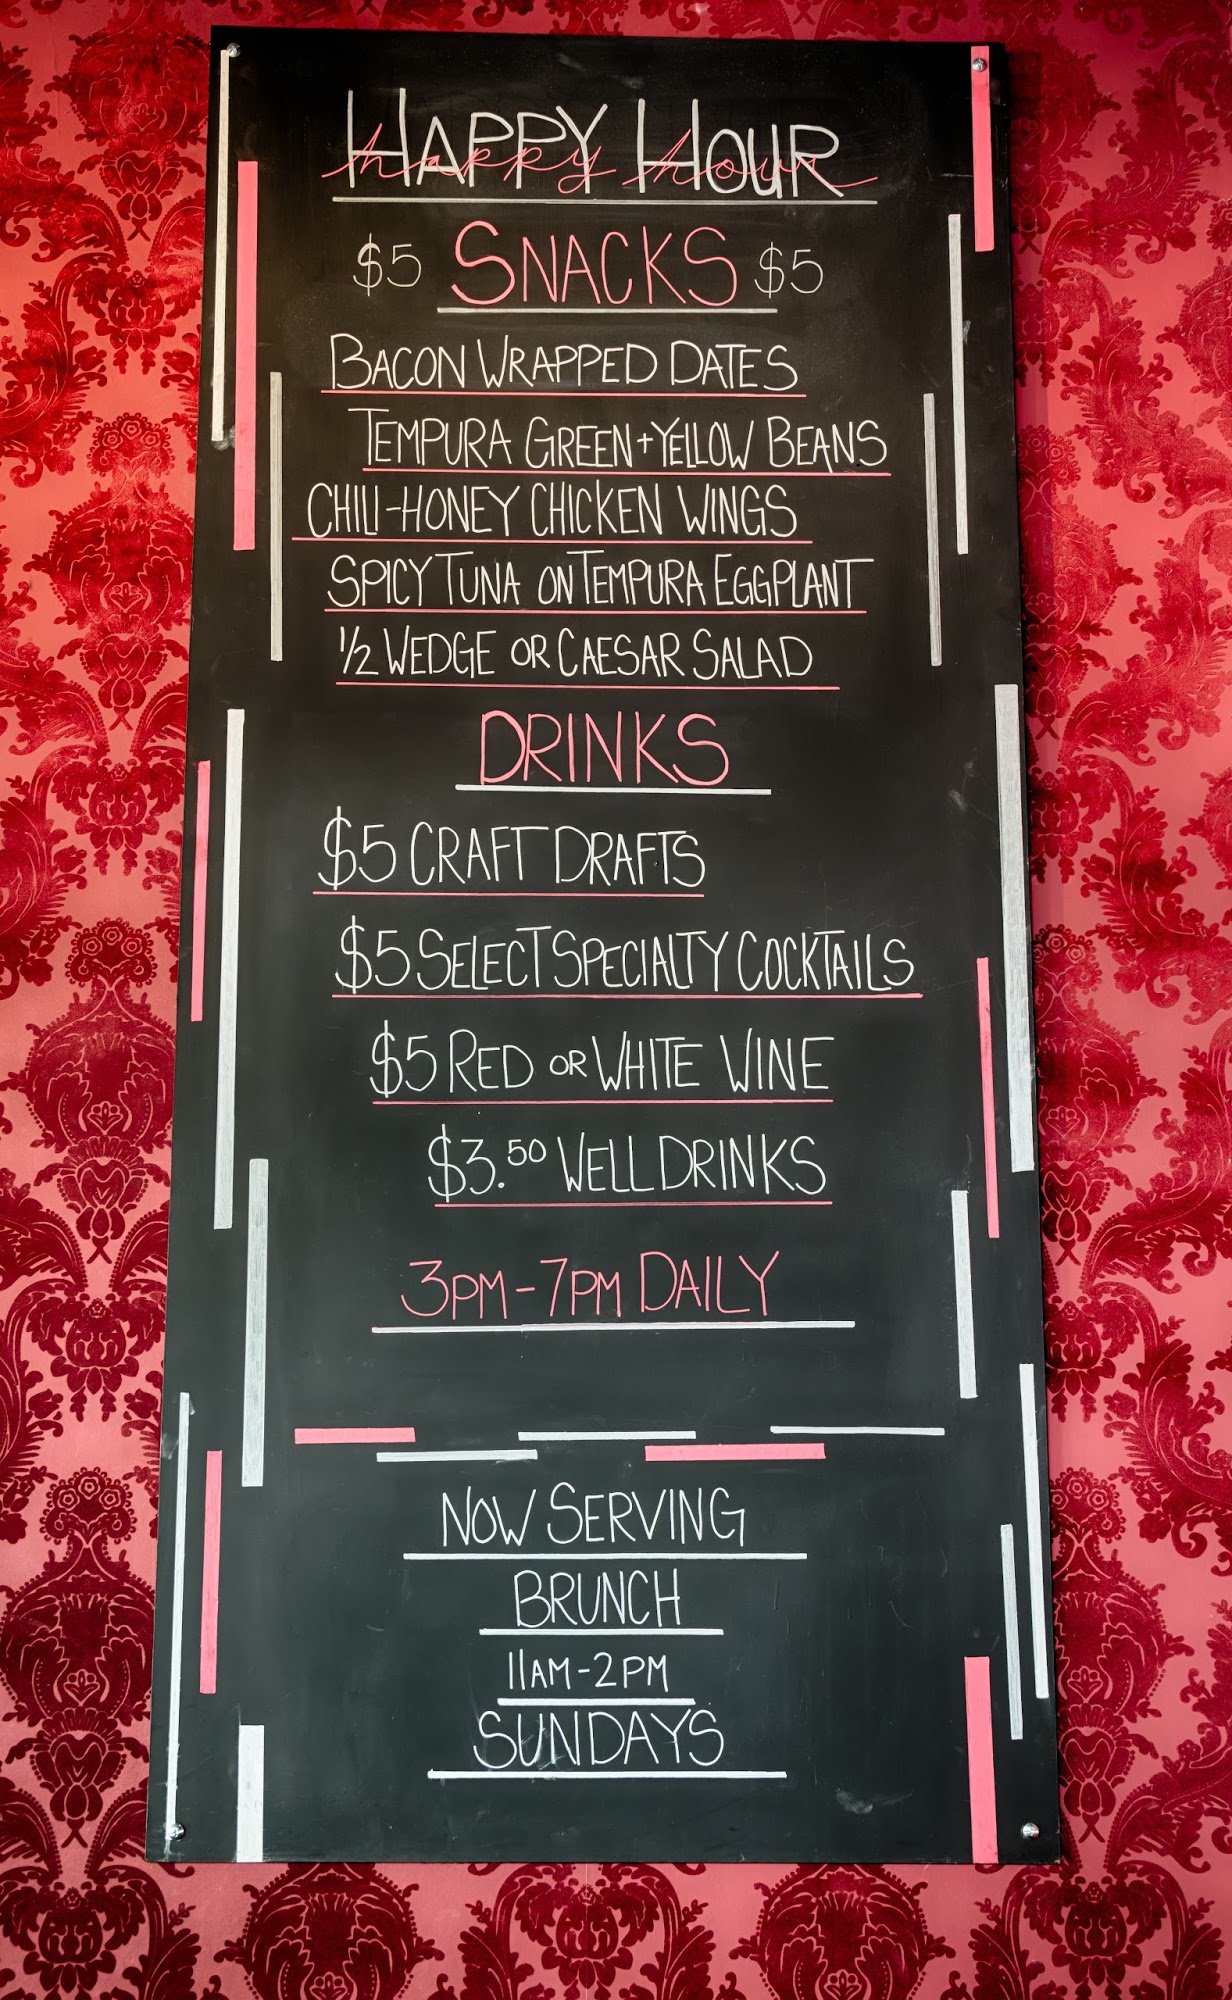 HAPPY HOUR
happy hour
$5 SNACKS $5
BACON WRAPPED DATES
TEMPURA GREEN+YELLOW BEANS
CHILI-HONEY CHICKEN WINGS
SPICY TUNA ON TEMPURA EGGPLANT
1/2 WEDGE OR CAESAR SALAD
DRINKS
$5 CRAFT DRAFTS
$5 SELECT SPECIALTY COCKTAILS
$5 RED OR WHITE WINE
$3.50 WELL DRINKS
3PM-7PM DAILY
NOW SERVING
BRUNCH
11AM-2PM
SUNDAYS